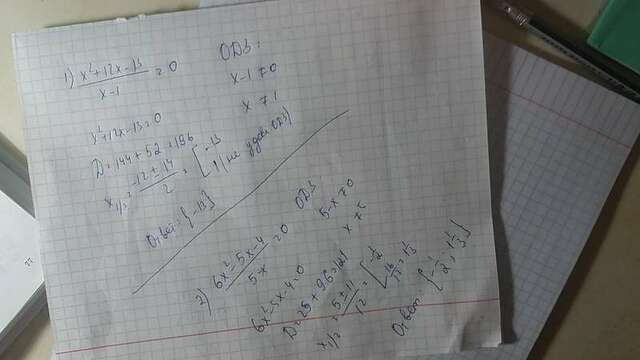 1) (x²+12x-13)/(x-1) = 0
ОДЗ:
x-1≠0
x≠1
x²+12x-13=0
D=144+52=196
x₁/₂ = (-12±14)/2 = [-13
1 (не удов. ОДЗ)
Ответ: {-13}
2) (6x²-5x-4)/(5-x) = 0
ОДЗ
5-x≠0
x≠5
6x²-5x-4=0
D=25+96=121
x₁/₂ = (5±11)/12 = [-1/2
16/12 = 1 1/3
Ответ: {-1/2; 1 1/3}